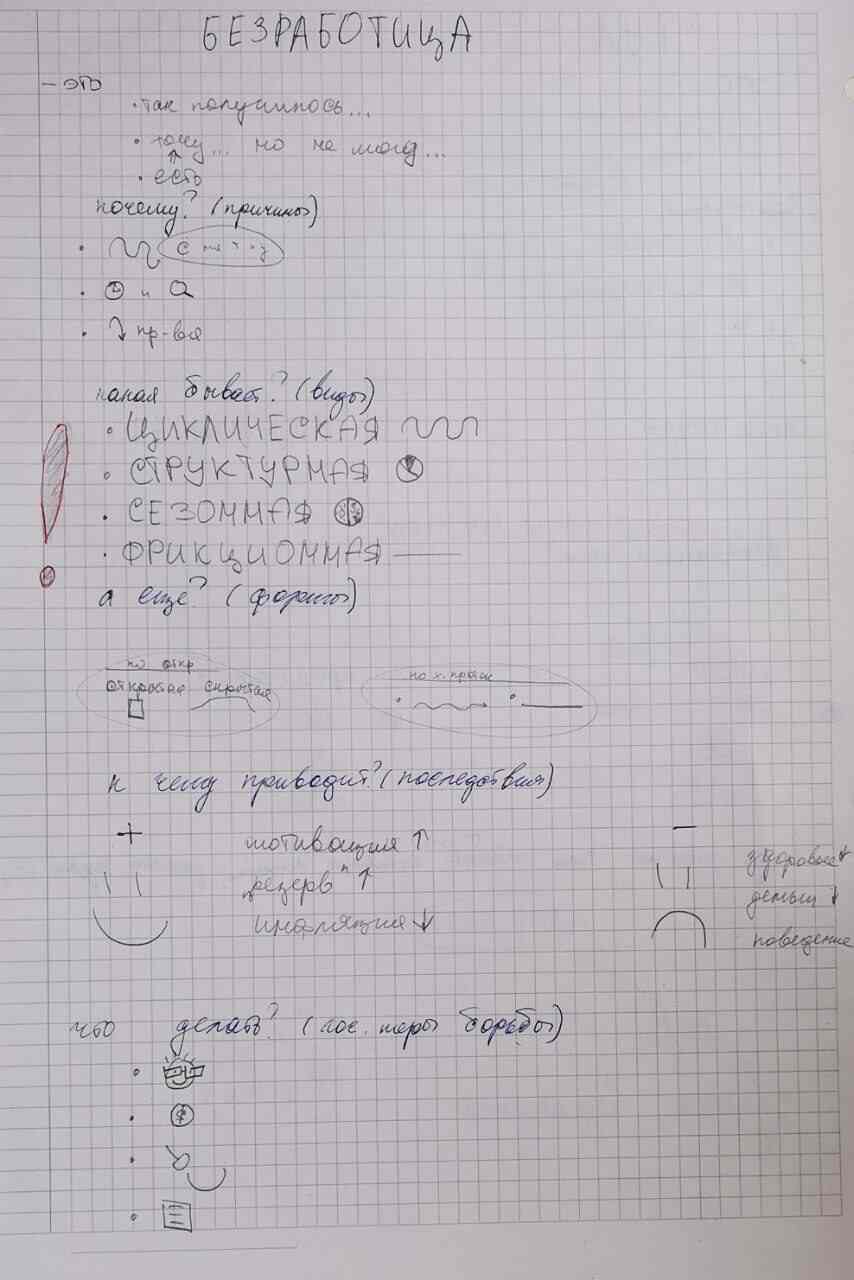 БЕЗРАБОТИЦА
– это
• так получилось...
• хочу... но не могу...
• есть
почему? (причины)
•
• и
• пр-вая
какая бывает? (виды)
• ЦИКЛИЧЕСКАЯ
• СТРУКТУРНАЯ
• СЕЗОННАЯ
• ФРИКЦИОННАЯ
а еще? (формы)
по откр
открытая скрытая
по х.
к чему приводит? (последствия)
+ мотивация ↑
"резерв" ↑
инфляция ↓
– здоровье ↓
деньги ↓
поведение
что делать? (гос. меры борьбы)
$